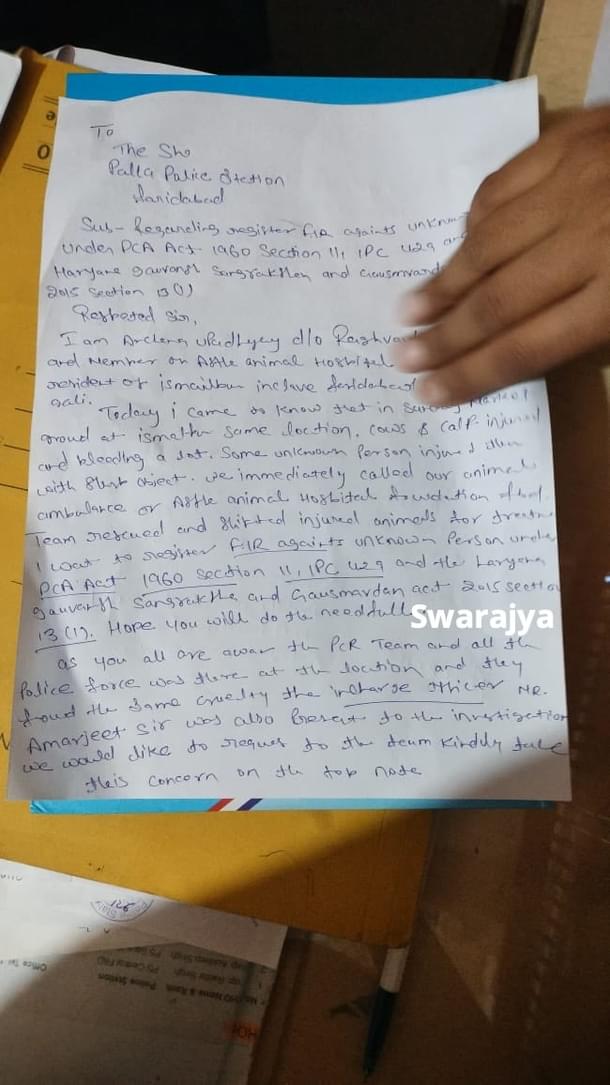 To
The Sho
Palla Police Station
Faridabad
Sub- Regarding register FIR againts unknow
Under PCA Act 1960 Section 11, IPC 429 and
Haryana Gauvansh Sangrakshan and Gausmvard
2015 Section 13(1)
Respected Sir,
I am Archana Upadhyay d/o Raghva
and Member on Asthe animal Hospital
resident of ismailbur inclave faridabad
gali.
Today i came to know that in
groud at ismailbur same location, cows & calf injured
and bleeding a lot. Some unknown Person injured then
with blunt object. we immediately called our animal
ambulance or Asthe animal Hospital foundation
Team rescued and shifted injured animals for
I want to register FIR againts unknown Person under
PCA Act 1960 Section 11, IPC 429 and the Haryana
gauvansh Sangraksha and Gausmardan act 2015 section
13(1). Hope you will do the needfull
Swarajya
as you all are awar the PCR Team and all the
Police force was there at the location and they
foud the same cruelty the incharge officer MR.
Amarjeet Sir was also Present to the investigation
we would like to reques to the team Kindly take
this concern on the top note
Office Tel
Police Station
PS Central FBD
No. SHO Name & Rank